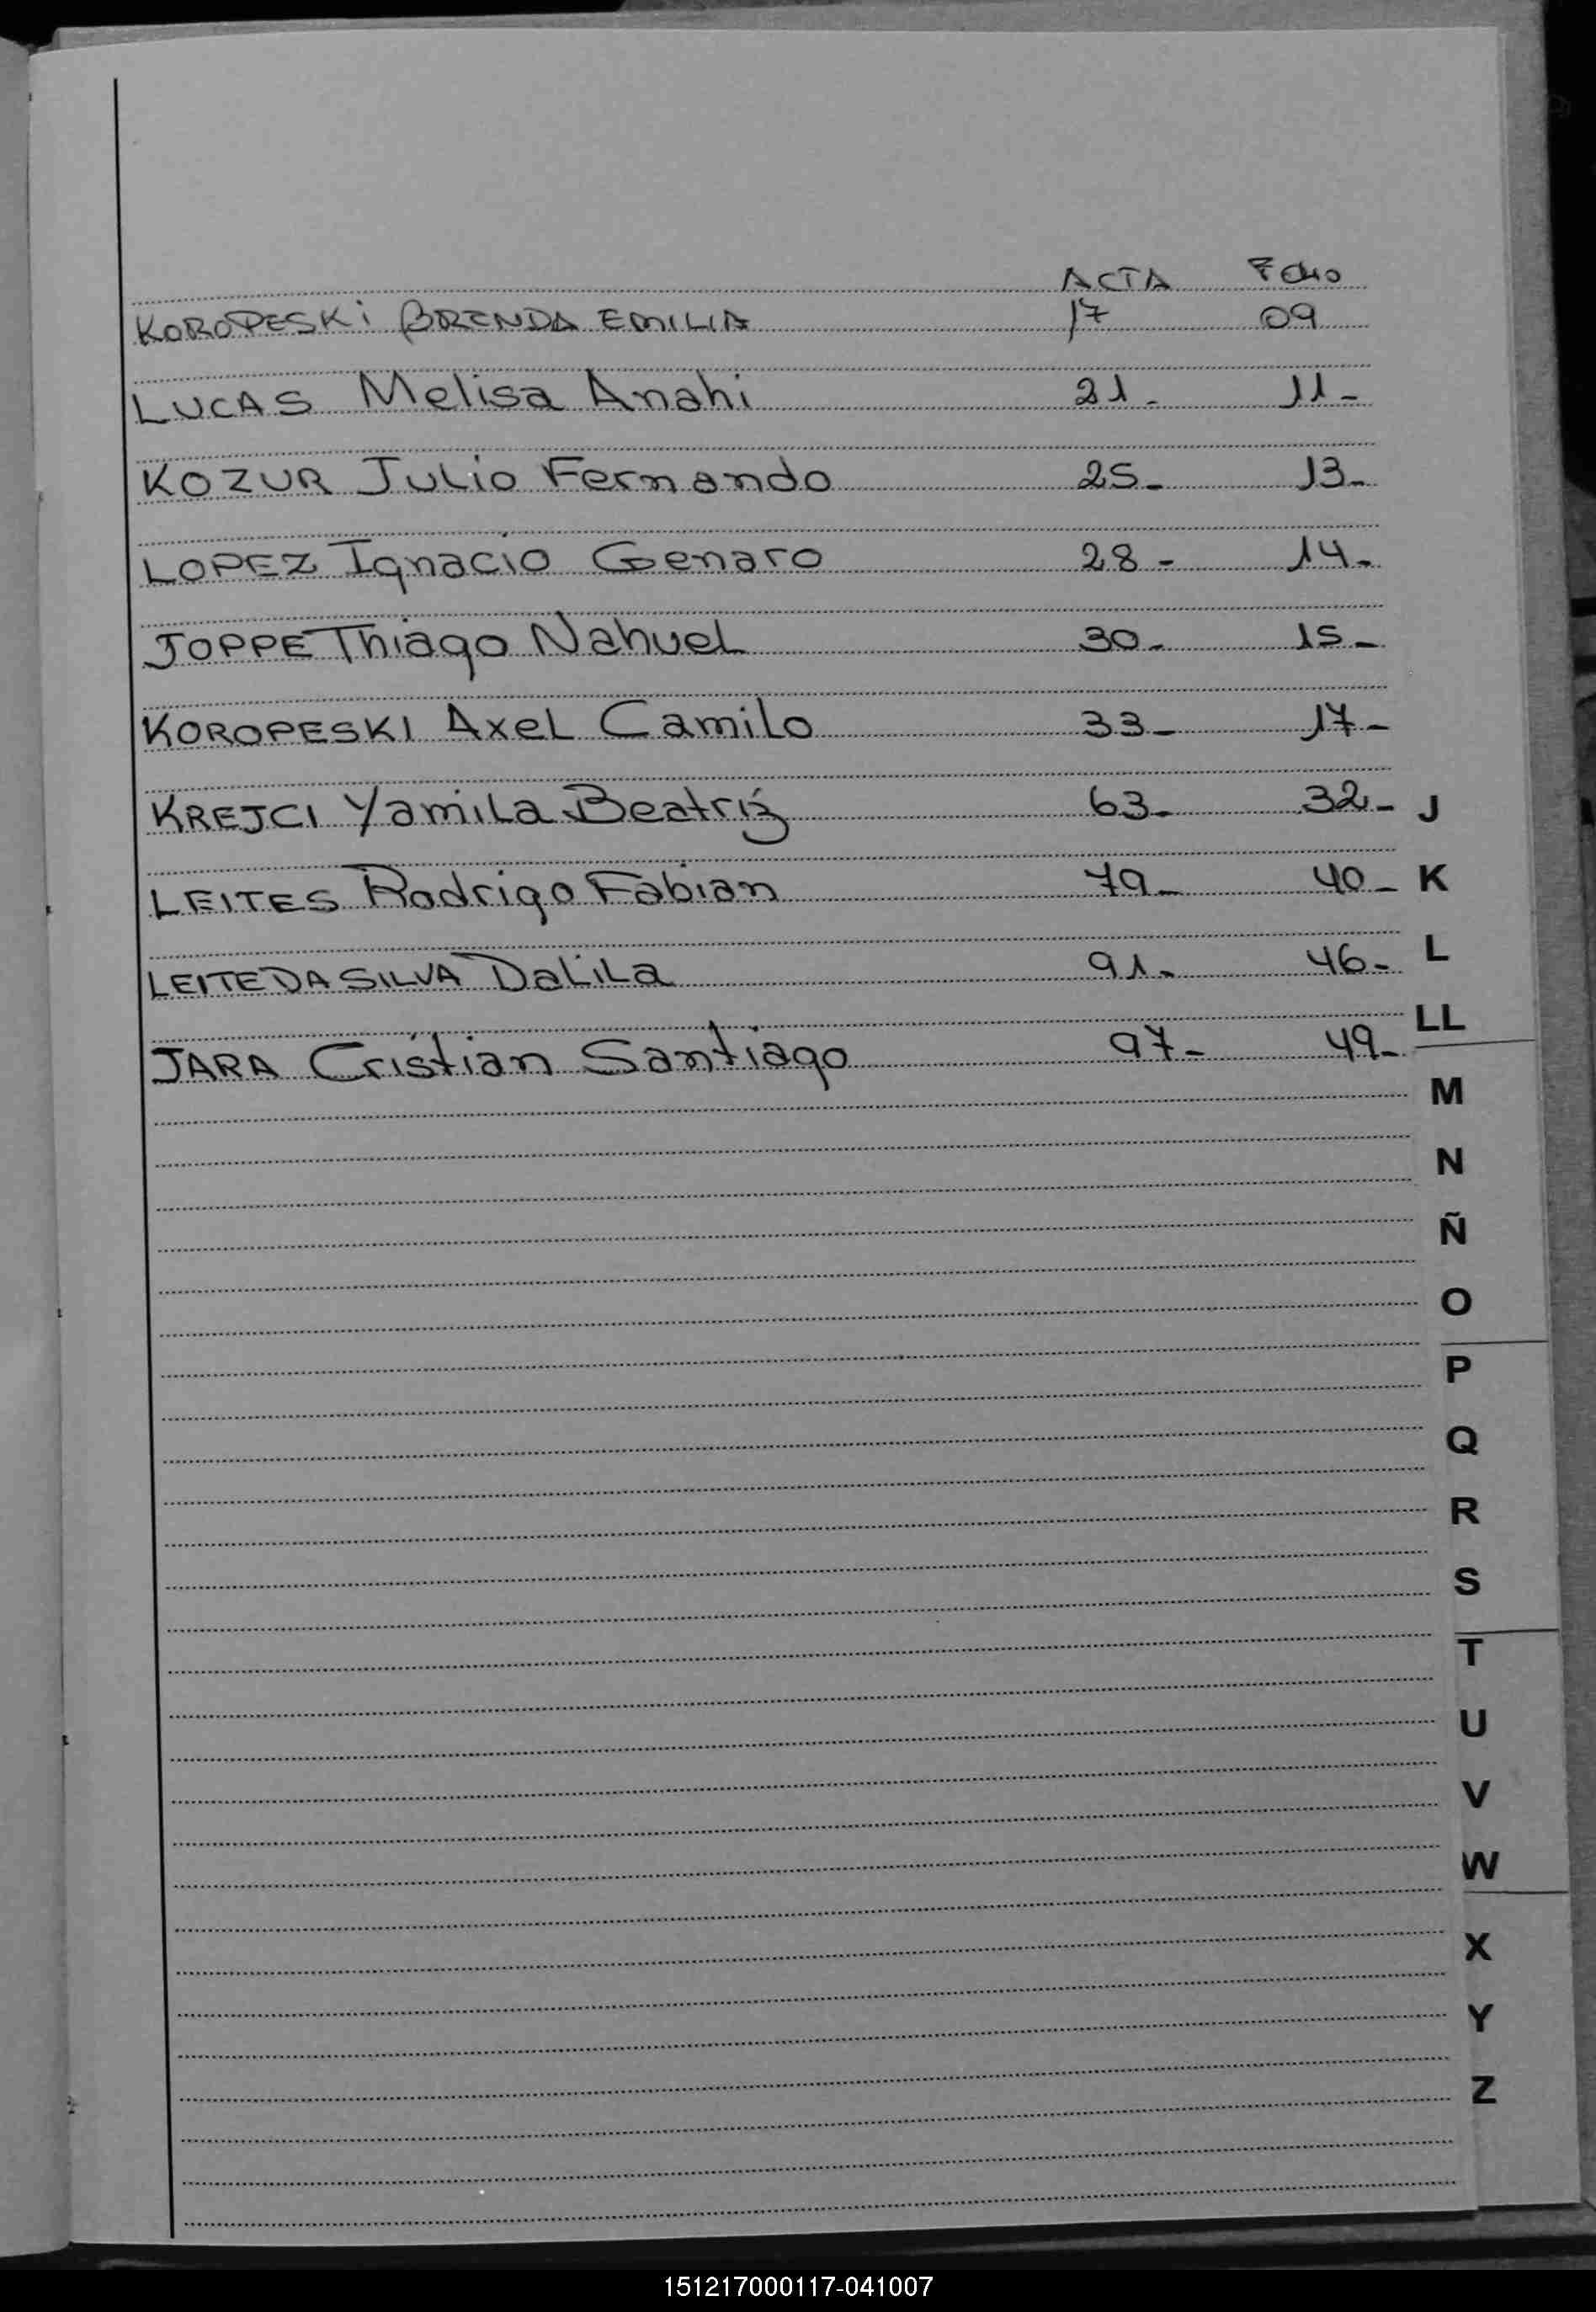 ACTA Folio
KOROPESKi BRENDA EMILIA 17 09
LUCAS Melisa Anahi 21- 11-
KOZUR Julio Fernando 25- 13-
LOPEZ Ignacio Genaro 28- 14-
JOPPE Thiago Nahuel 30- 15-
KOROPESKI Axel Camilo 33- 17-
KREJCI Yamila Beatriz 63- 32- J
LEITES Rodrigo Fabian 79- 40- K
LEITE DA SILVA Dalila 91- 46- L
JARA Cristian Santiago 97- 49- LL
M
N
Ñ
O
P
Q
R
S
T
U
V
W
X
Y
Z
151217000117-041007